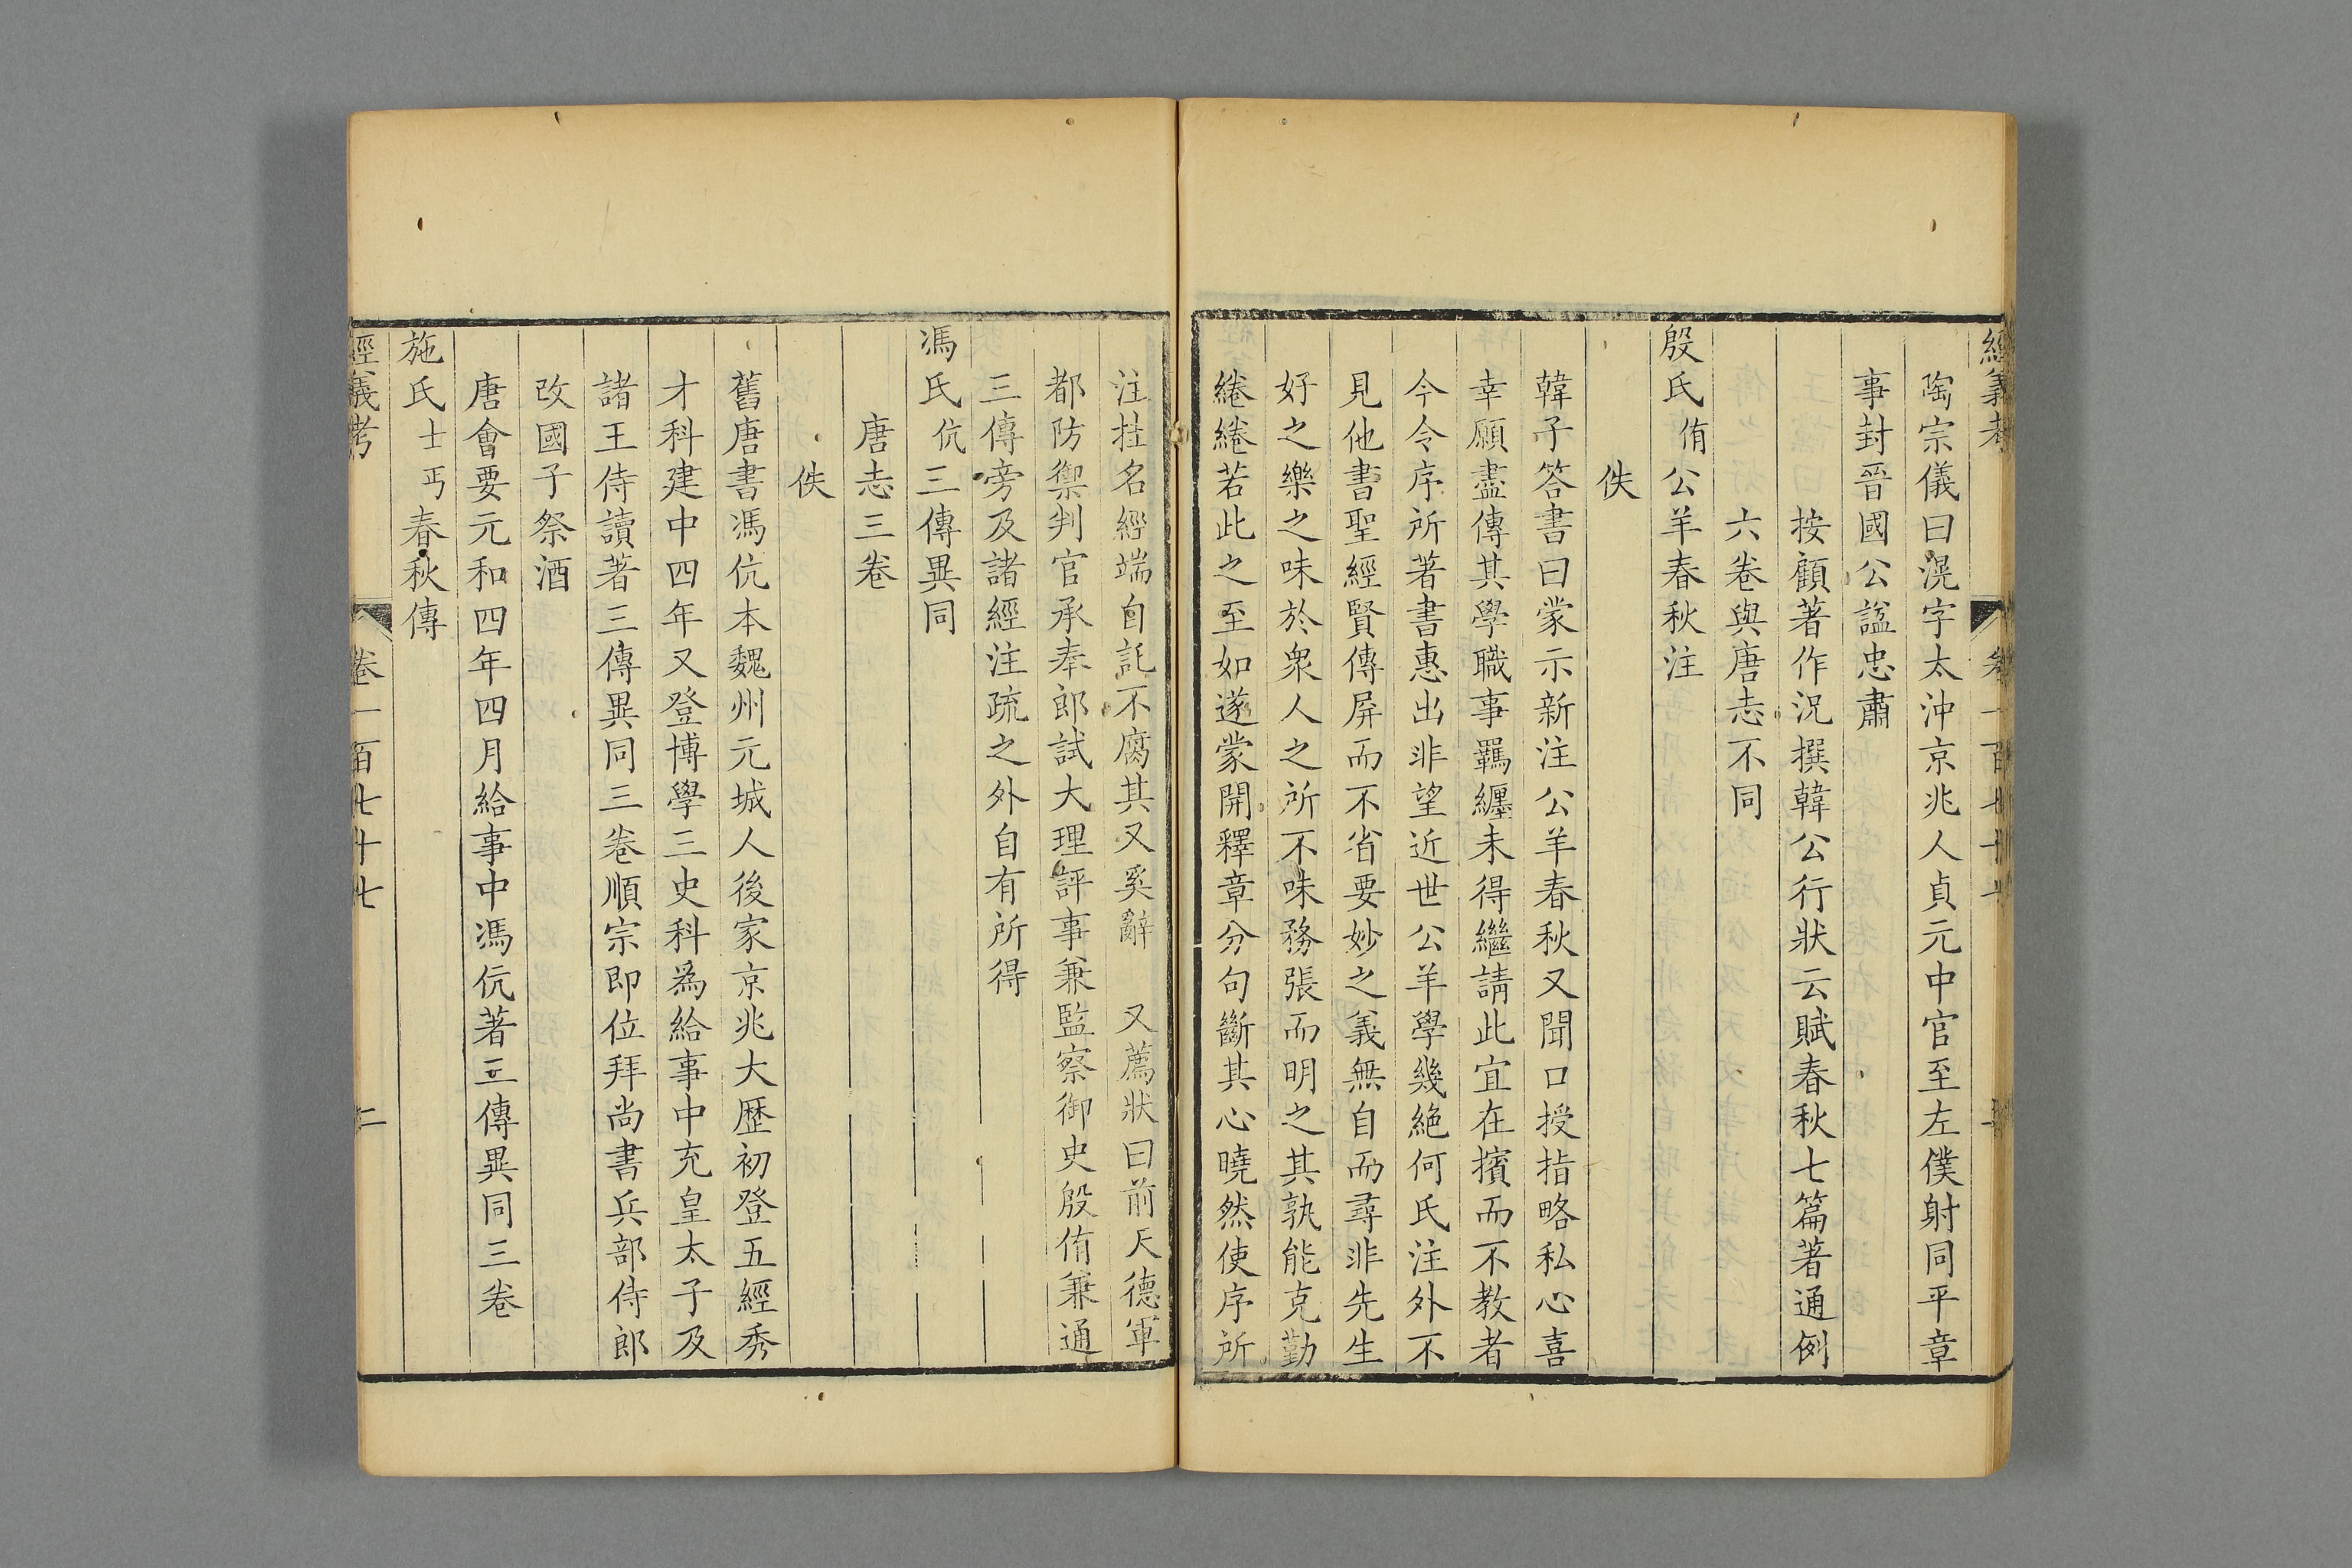 陶宗儀曰滉字太沖京兆人貞元中官至左僕射同平章
事封晉國公諡忠肅
按顧著作況撰韓公行狀云賦春秋七篇著通例
六卷與唐志不同
殷氏侑公羊春秋注
佚
韓子答書曰蒙示新注公羊春秋又聞口授指略私心喜
幸願盡傳其學職事羈纏未得繼請此宜在擯而不教者
今令序所著書惠出非望近世公羊學幾絶何氏注外不
見他書聖經賢傳屏而不省要妙之義無自而尋非先生
好之樂之味於衆人之所不味務張而明之其孰能克勤
綣綣若此之至如遂蒙開釋章分句斷其心曉然使序所
注挂名經端自託不腐其又奚辭 又薦狀曰前天德軍
都防禦判官承奉郎試大理評事兼監察御史殷侑兼通
三傳旁及諸經注疏之外自有所得
馮氏伉三傳異同
唐志三卷
佚
舊唐書馮伉本魏州元城人後家京兆大歷初登五經秀
才科建中四年又登博學三史科爲給事中充皇太子及
諸王侍讀著三傳異同三卷順宗即位拜尚書兵部侍郎
改國子祭酒
唐會要元和四年四月給事中馮伉著三傳異同三卷
施氏士丐春秋傳
經義考 卷一百七十七 二